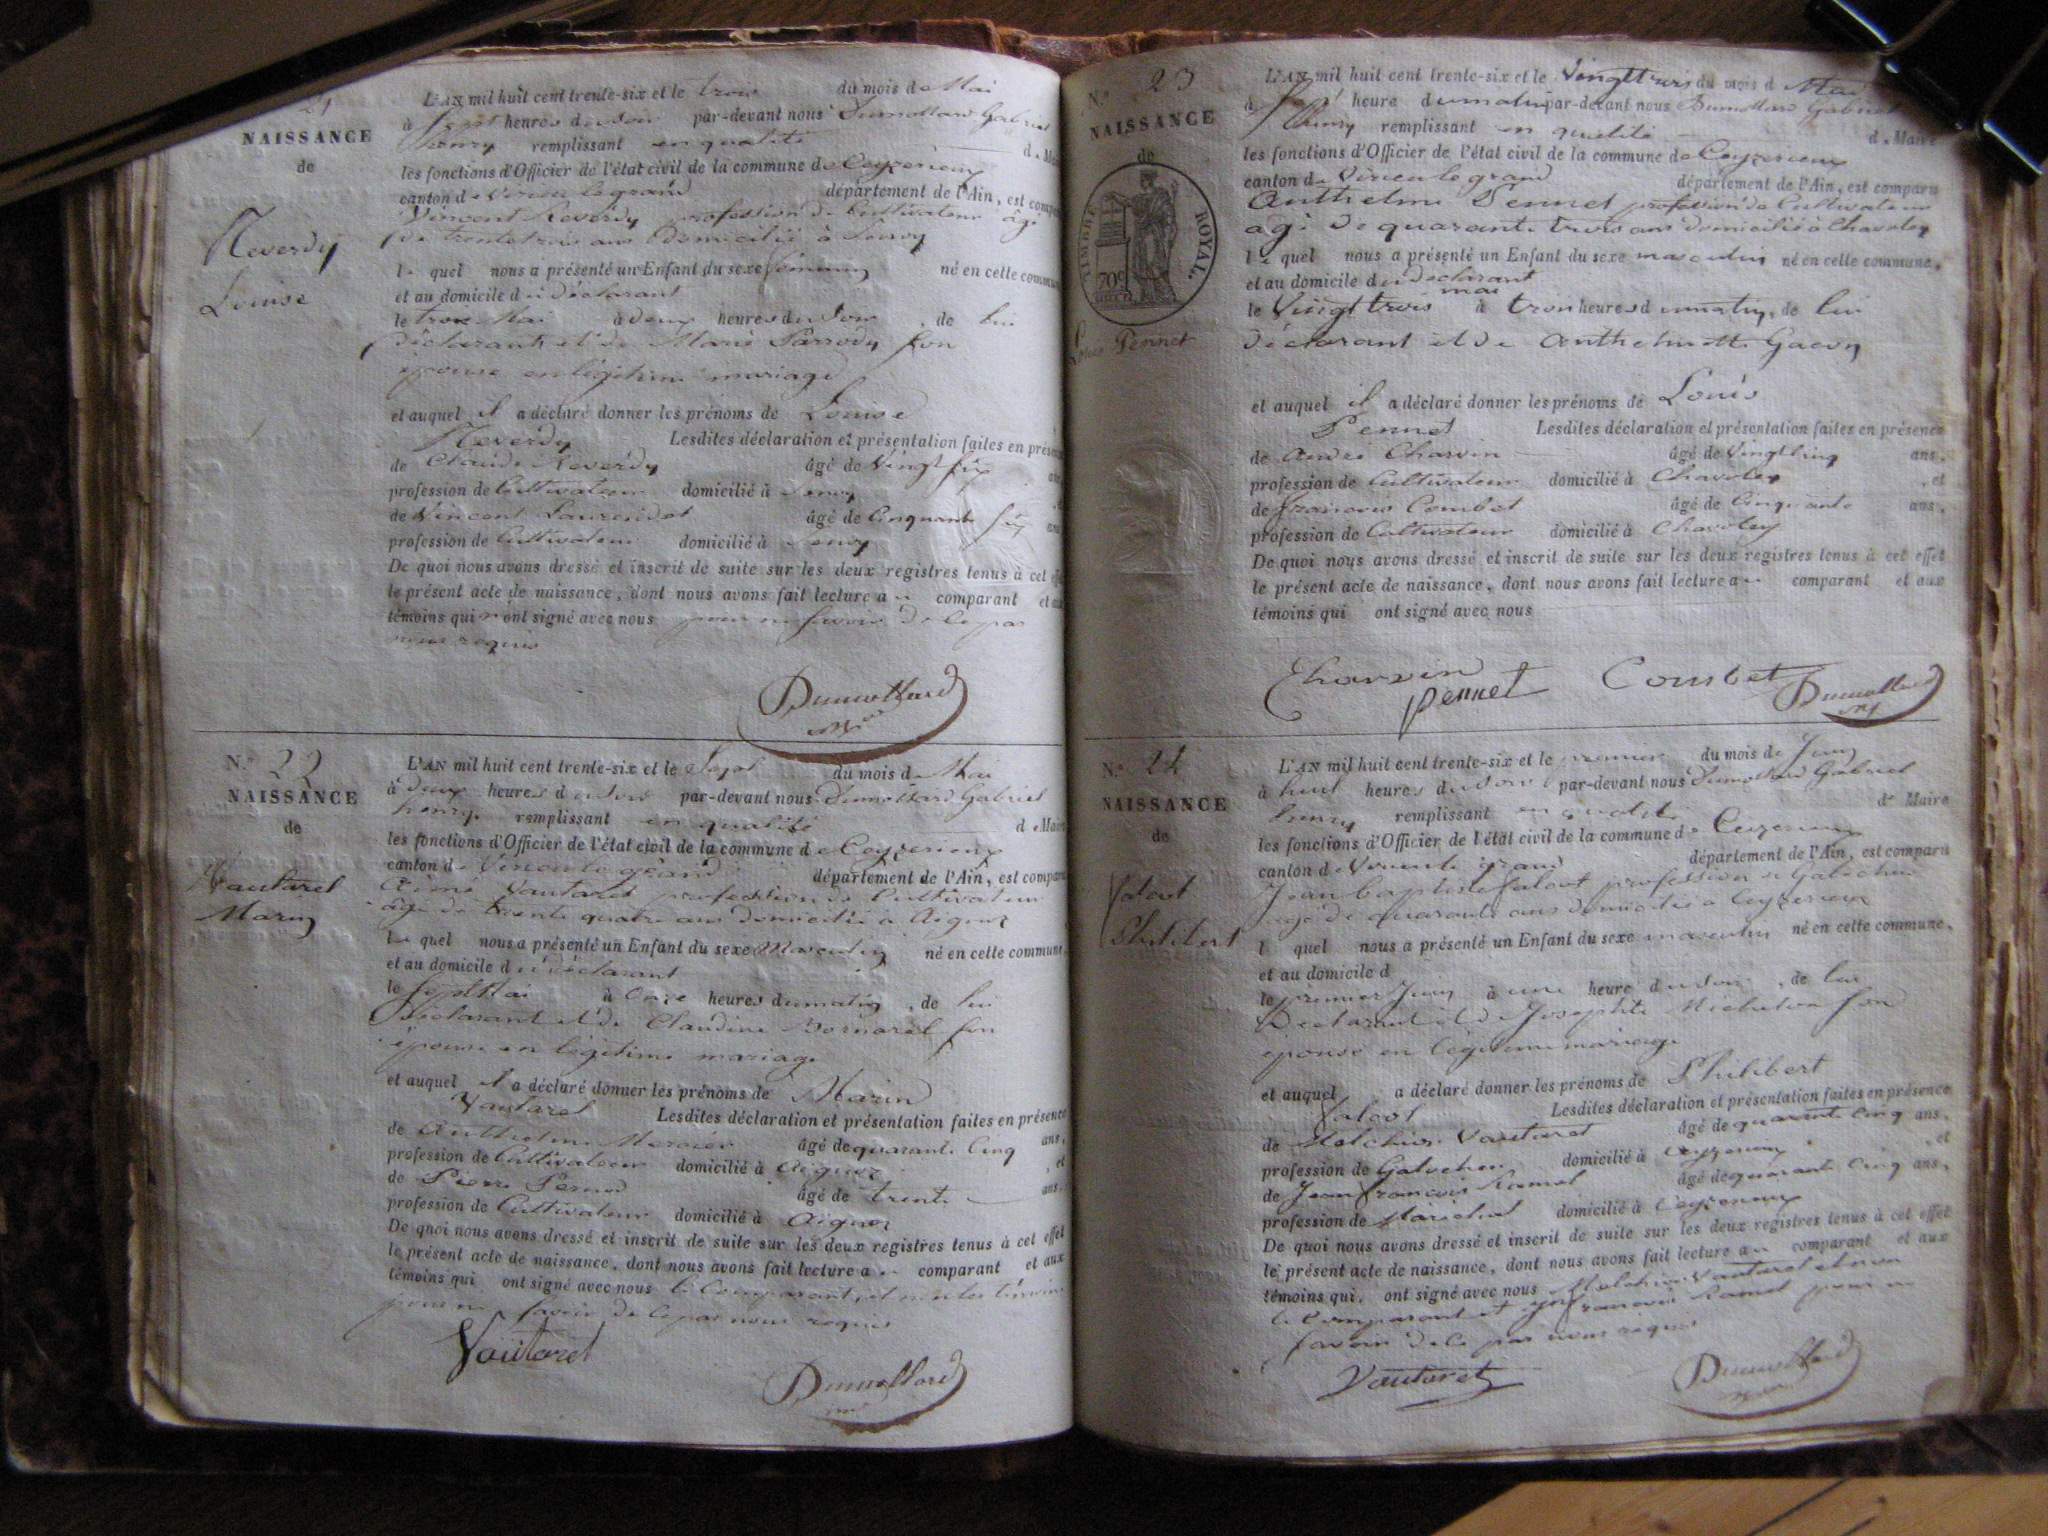 21
NAISSANCE
de
Reverdy
Louise
L'AN mil huit cent trente-six et le trois du mois de Mai
à sept heures du soir par-devant nous Dumollard Gabriel
henry remplissant en qualité de Maire
les fonctions d'Officier de l'état civil de la commune de Ceyzerieux
canton de Virieu le grand département de l'Ain, est comparu
Vincent Reverdy profession de Cultivateur âgé
de trente trois ans domicilié à
le quel nous a présenté un Enfant du sexe féminin né en cette commune
et au domicile du déclarant
le trois Mai à deux heures du soir, de lui
déclarant et de Marie Parrody son
épouse en légitime mariage
et auquel il a déclaré donner les prénoms de Louise
Reverdy Lesdites déclaration et présentation faites en présence
de Claude Reverdy âgé de Vingt six ans
profession de Cultivateur domicilié à
de Vincent âgé de Cinquante six ans
profession de Cultivateur domicilié à
De quoi nous avons dressé et inscrit de suite sur les deux registres tenus à cet effet
le présent acte de naissance, dont nous avons fait lecture au comparant et aux
témoins qui n'ont signé avec nous pour ne savoir de ce par
nous requis
Dumollard
N.º 22
NAISSANCE
de
Vautaret
Marin
L'AN mil huit cent trente-six et le Sept du mois de Mai
à deux heures du soir par-devant nous Dumollard Gabriel
henry remplissant en qualité de Maire
les fonctions d'Officier de l'état civil de la commune de Ceyzerieux
canton de Virieu le grand département de l'Ain, est comparu
Aimé Vautaret profession de Cultivateur
âgé de trente quatre ans domicilié à Aignoz
le quel nous a présenté un Enfant du sexe Masculin né en cette commune,
et au domicile du déclarant
le sept Mai à Onze heures du matin, de lui
déclarant et de Claudine Bornarel son
épouse en légitime mariage
et auquel il a déclaré donner les prénoms de Marin
Vautaret Lesdites déclaration et présentation faites en présence
de Anthelme Mercier âgé de quarante Cinq ans,
profession de Cultivateur domicilié à Aignoz, et
de Pierre Pernod âgé de trente ans,
profession de Cultivateur domicilié à Aignoz
De quoi nous avons dressé et inscrit de suite sur les deux registres tenus à cet effet
le présent acte de naissance, dont nous avons fait lecture au comparant et aux
témoins qui ont signé avec nous le Comparant, et non les témoins
pour ne savoir de ce par nous requis
Vautaret
Dumollard
N.º 23
NAISSANCE
de
TIMBRE ROYAL.
70c
Louis Pennet
L'AN mil huit cent trente-six et le Vingt trois du mois de Mai
à heure du matin par-devant nous Dumollard Gabriel
henry remplissant en qualité de Maire
les fonctions d'Officier de l'état civil de la commune de Ceyzerieux
canton de Virieu le grand département de l'Ain, est comparu
Anthelme Pennet profession de Cultivateur
agé de quarante trois ans domicilié à Chavoley
le quel nous a présenté un Enfant du sexe masculin né en cette commune,
et au domicile du déclarant
mai
le Vingt trois à trois heures du matin, de lui
déclarant et de Anthelmette
et auquel il a déclaré donner les prénoms de Louis
Pennet Lesdites déclaration et présentation faites en présence
de André Charvin âgé de Vingt Cinq ans,
profession de Cultivateur domicilié à Chavoley, et
de francois Combet âgé de Cinquante ans,
profession de Cultivateur domicilié à Chavoley
De quoi nous avons dressé et inscrit de suite sur les deux registres tenus à cet effet
le présent acte de naissance, dont nous avons fait lecture au comparant et aux
témoins qui ont signé avec nous
Charvin Combet
Pennet Dumollard
N.º 24
NAISSANCE
de
Jalout
Philibert
L'AN mil huit cent trente-six et le premier du mois de Juin
à huit heures du soir par-devant nous Dumollard Gabriel
henry remplissant en qualité de Maire
les fonctions d'Officier de l'état civil de la commune de Ceyzerieux
canton de Virieu le grand département de l'Ain, est comparu
Jean baptiste profession de Galochier
agé de quarante ans domicilié à Ceyzerieux
l quel nous a présenté un Enfant du sexe masculin né en cette commune,
et au domicile d
le premier Juin à une heure du soir, de lui
Déclarant et de Josephte Michelon son
épouse en légitime mariage
et auquel a déclaré donner les prénoms de Philibert
Lesdites déclaration et présentation faites en présence
de Melchior Vautaret âgé de quarante Cinq ans,
profession de Galochier domicilié à Ceyzerieux, et
de Jean francois Ramel âgé de quarante Cinq ans,
profession de Maréchal domicilié à Ceyzerieux
De quoi nous avons dressé et inscrit de suite sur les deux registres tenus à cet effet
le présent acte de naissance, dont nous avons fait lecture au comparant et aux
témoins qui, ont signé avec nous Melchior Vautaret et non
le Comparant et Jn francois Ramel pour ne
savoir de ce par nous requis
Vautaret
Dumollard